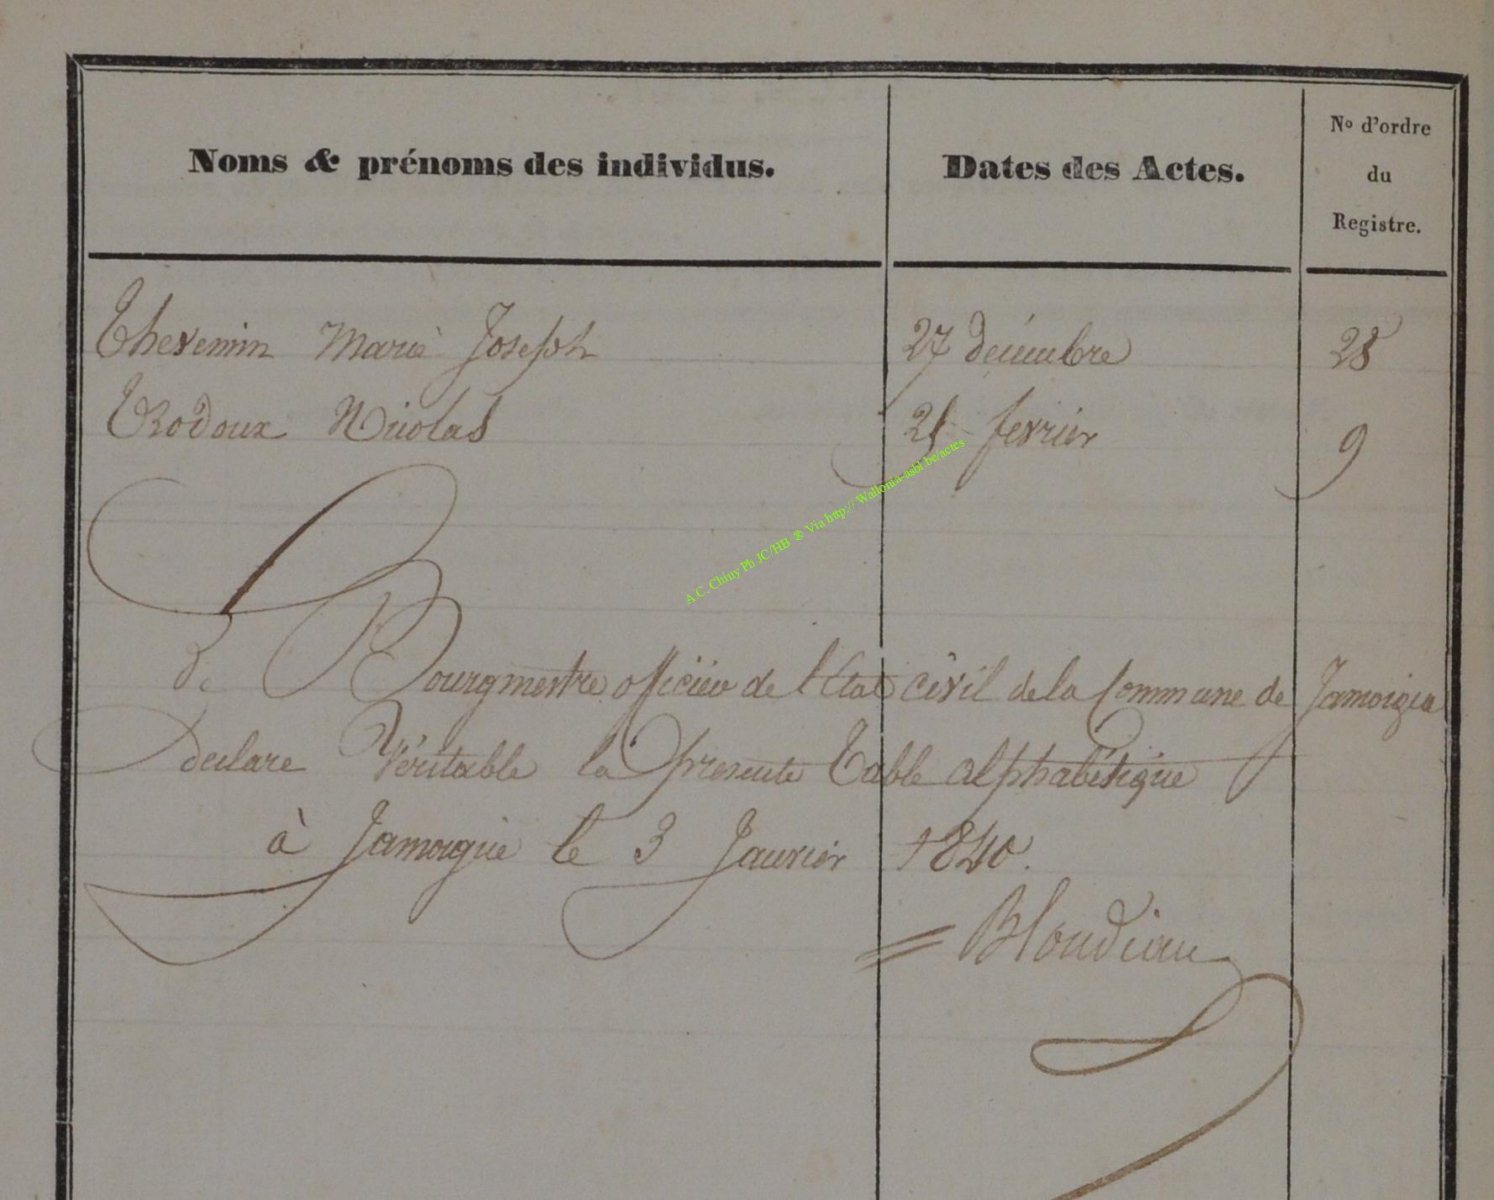 Noms & prénoms des individus. Dates des Actes. Nº d'ordre
du
Registre.
Thevenin Marie Joseph 27 décembre 28
Trodoux Nicolas février 9
A.C. Chiny Ph JC/HB ® Via http:// Wallonia-asbl.be/actes
Bourgmestre officier de l'état civil de la Commune de Jamoigne
Declare Véritable la presente Table alphabétique
à Jamoigne le 3 Janvier 1840.
= Blondiau